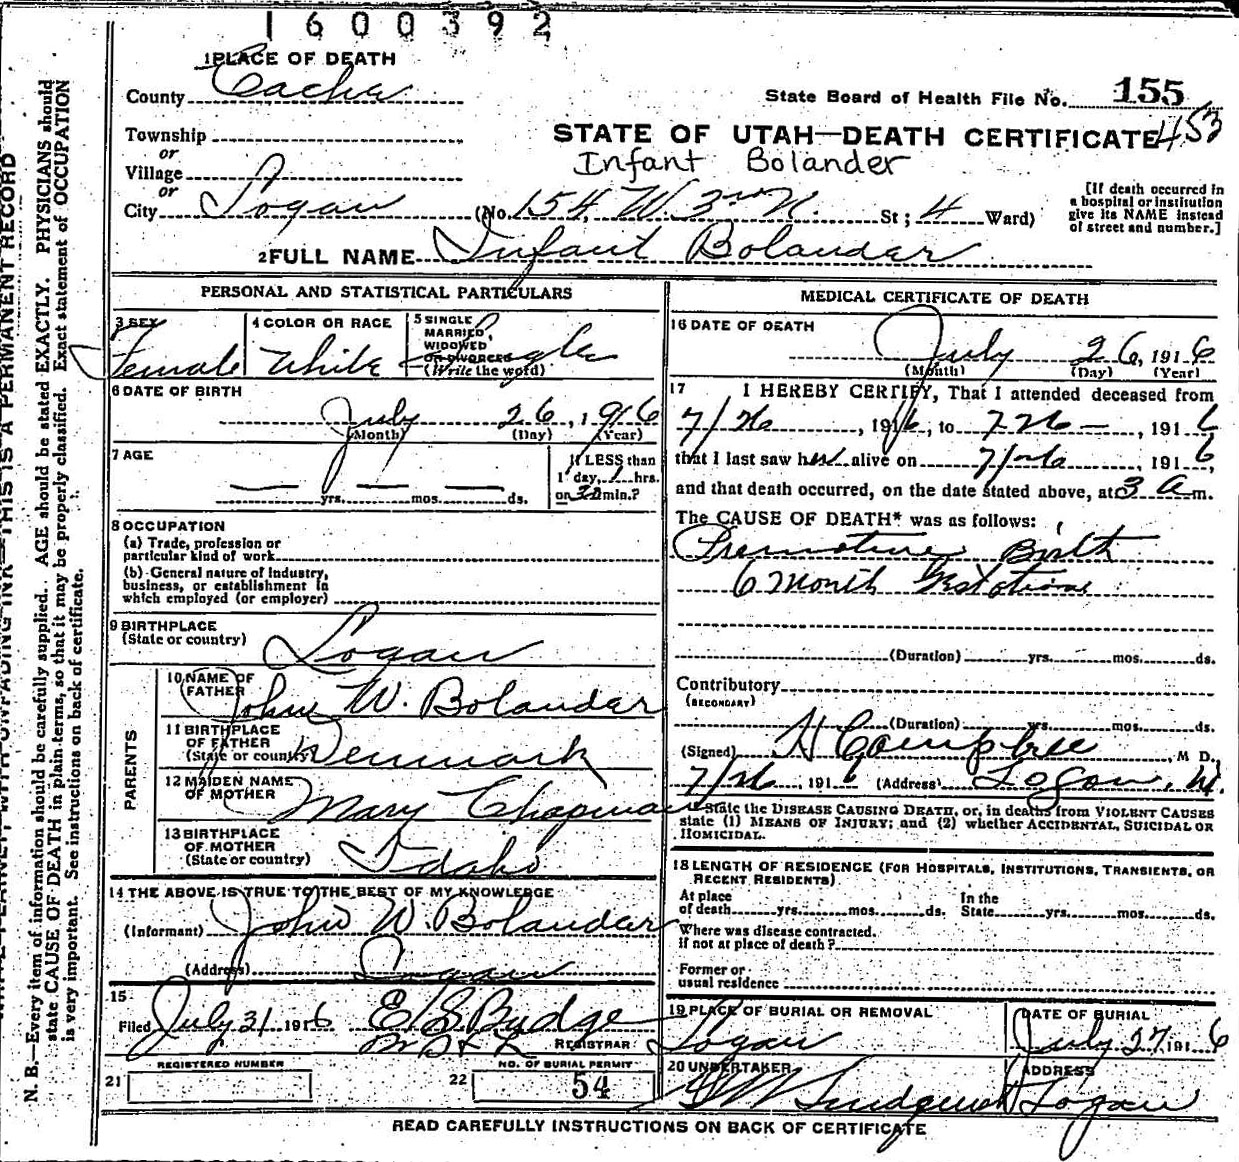 1600392
1 PLACE OF DEATH
County Cache
State Board of Health File No. 155
453
Township
or
Village
or
City Logan
STATE OF UTAH—DEATH CERTIFICATE
Infant Bolander
(No. 154 W. 3rd N. St; 4 Ward)
[If death occurred in
a hospital or institution
give its NAME instead
of street and number.]
2 FULL NAME Infant Bolander
PERSONAL AND STATISTICAL PARTICULARS
3 SEX Female
4 COLOR OR RACE White
5 SINGLE
MARRIED,
WIDOWED
OR DIVORCED
(Write the word)
Single
6 DATE OF BIRTH
July 26, 1916
(Month) (Day) (Year)
7 AGE
— yrs. — mos. — ds.
If LESS than
1 day, 1 hrs.
or 30 min.?
8 OCCUPATION
(a) Trade, profession or
particular kind of work
(b) General nature of Industry,
business, or establishment in
which employed (or employer)
9 BIRTHPLACE
(State or country) Logan
PARENTS
10 NAME OF
FATHER John W. Bolander
11 BIRTHPLACE
OF FATHER
(State or country) Denmark
12 MAIDEN NAME
OF MOTHER Mary Chapman
13 BIRTHPLACE
OF MOTHER
(State or country) Idaho
14 THE ABOVE IS TRUE TO THE BEST OF MY KNOWLEDGE
(Informant) John W. Bolander
(Address) Logan
15
Filed July 31 1916 E S Budge
REGISTRAR
REGISTERED NUMBER
21
NO. OF BURIAL PERMIT
22 54
MEDICAL CERTIFICATE OF DEATH
16 DATE OF DEATH
July 26, 1916
(Month) (Day) (Year)
17 I HEREBY CERTIFY, That I attended deceased from
7/26, 1916, to 7 26 —, 1916
that I last saw her alive on 7/26 1916,
and that death occurred, on the date stated above, at 3 a m.
The CAUSE OF DEATH* was as follows:
Premature Birth
6 month Gestation
(Duration) yrs. mos. ds.
Contributory
(SECONDARY)
(Duration) yrs. mos. ds.
(Signed) M D.
7/26, 1916 (Address) Logan, U.
*State the DISEASE CAUSING DEATH, or, in deaths from VIOLENT CAUSES
state (1) MEANS OF INJURY; and (2) whether ACCIDENTAL, SUICIDAL OR
HOMICIDAL.
18 LENGTH OF RESIDENCE (FOR HOSPITALS, INSTITUTIONS, TRANSIENTS, OR
RECENT RESIDENTS)
At place
of death yrs. mos. ds.
In the
State yrs. mos. ds.
Where was disease contracted,
if not at place of death?
Former or
usual residence
19 PLACE OF BURIAL OR REMOVAL
Logan
DATE OF BURIAL
July 27, 1916
20 UNDERTAKER
ADDRESS
Logan
READ CAREFULLY INSTRUCTIONS ON BACK OF CERTIFICATE
WRITE PLAINLY, WITH UNFADING INK—THIS IS A PERMANENT RECORD
N. B.—Every item of information should be carefully supplied. AGE should be stated EXACTLY. PHYSICIANS should
state CAUSE OF DEATH in plain terms, so that it may be properly classified. Exact statement of OCCUPATION
is very important. See instructions on back of certificate.